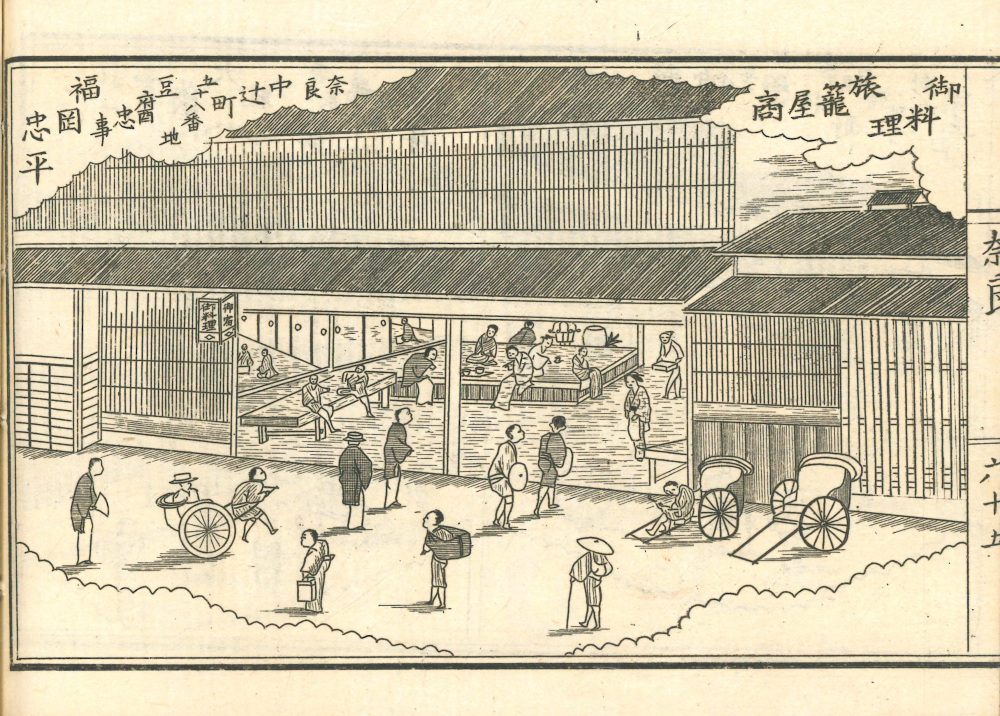 御料理
旅籠屋商
奈良中辻町
五十八番地
豆腐忠事
福岡忠平
御料理
奈良
六十